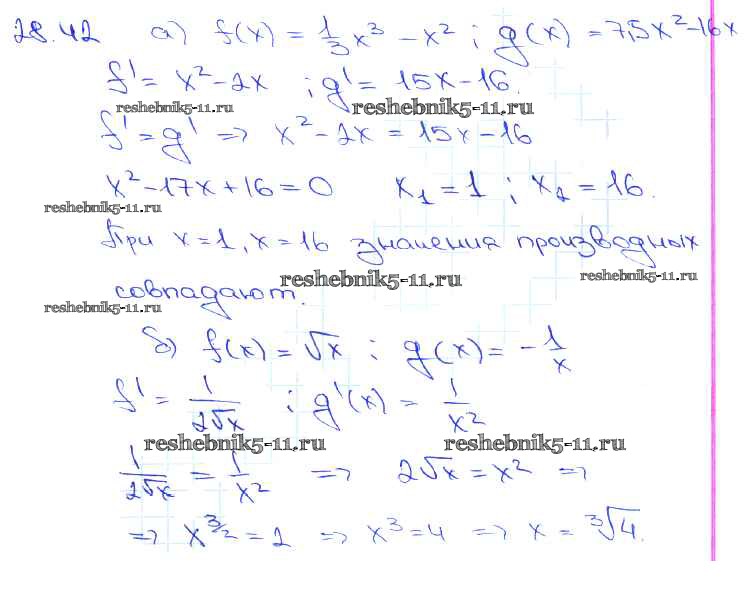 28.42 а) f(x) = 1/3 x³ - x² ; g(x) = 7,5x² - 16x
f' = x² - 2x ; g' = 15x - 16.
reshebnik5-11.ru reshebnik5-11.ru
f' = g' => x² - 2x = 15x - 16
x² - 17x + 16 = 0 x₁ = 1 ; x₂ = 16.
reshebnik5-11.ru
При x = 1, x = 16 значения производных
reshebnik5-11.ru reshebnik5-11.ru
совпадают.
reshebnik5-11.ru
б) f(x) = √x ; g(x) = - 1/x
f' = 1/(2√x) ; g'(x) = 1/x²
reshebnik5-11.ru reshebnik5-11.ru
1/(2√x) = 1/x² => 2√x = x² =>
=> x^(3/2) = 2 => x³ = 4 => x = ³√4.